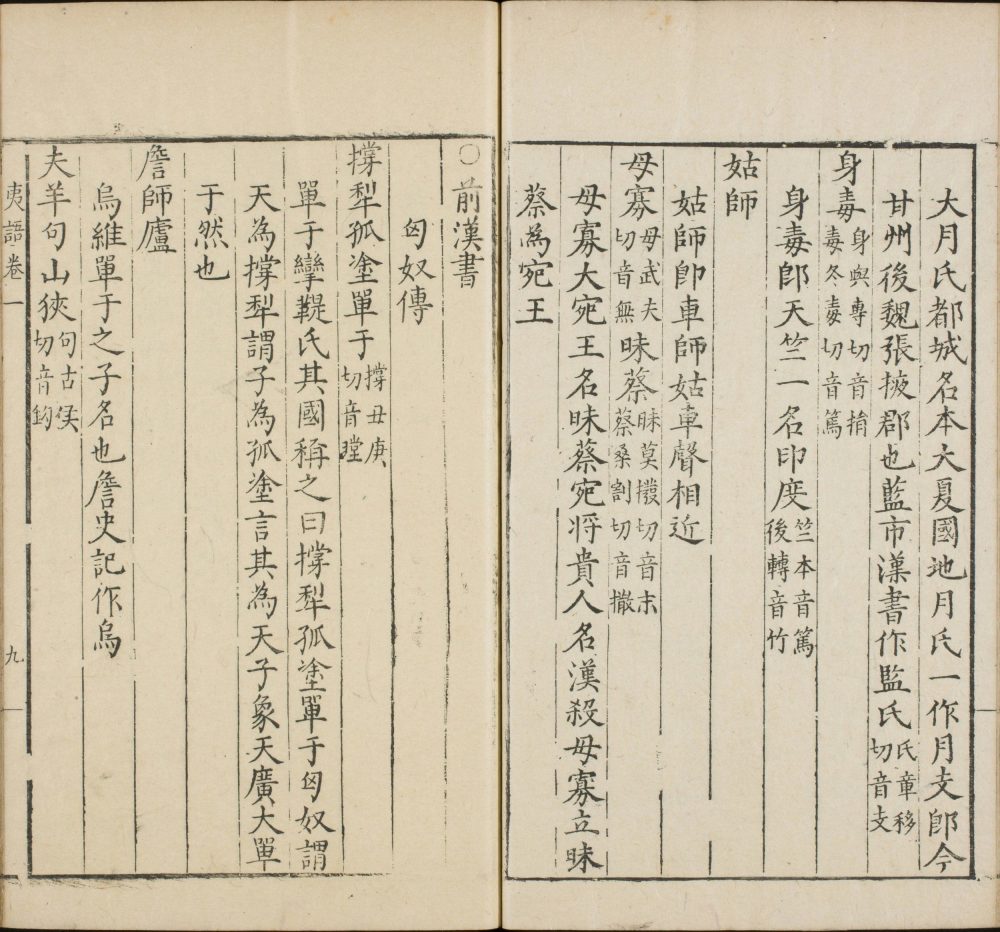 大月氏都城名本大夏國地月氏一作月支卽今
甘州後魏張掖郡也藍市漢書作監氏氏章移切音支
身毒身與專切音捐毒冬毒切音篤
身毒卽天竺一名印度竺本音篤後轉音竹
姑師
姑師卽車師姑車聲相近
毋寡毋武夫切音無昧蔡昧莫撥切音末蔡桑割切音撒
毋寡大宛王名昧蔡宛將貴人名漢殺毋寡立昧
蔡為宛王
○前漢書
匈奴傳
撐犁孤塗單于撐丑庚切音瞠
單于攣鞮氏其國稱之曰撐犁孤塗單于匈奴謂
天為撐犁謂子為孤塗言其為天子象天廣大單
于然也
詹師廬
烏維單于之子名也詹史記作烏
夫羊句山狹句古侯切音鉤
夷語卷一
九